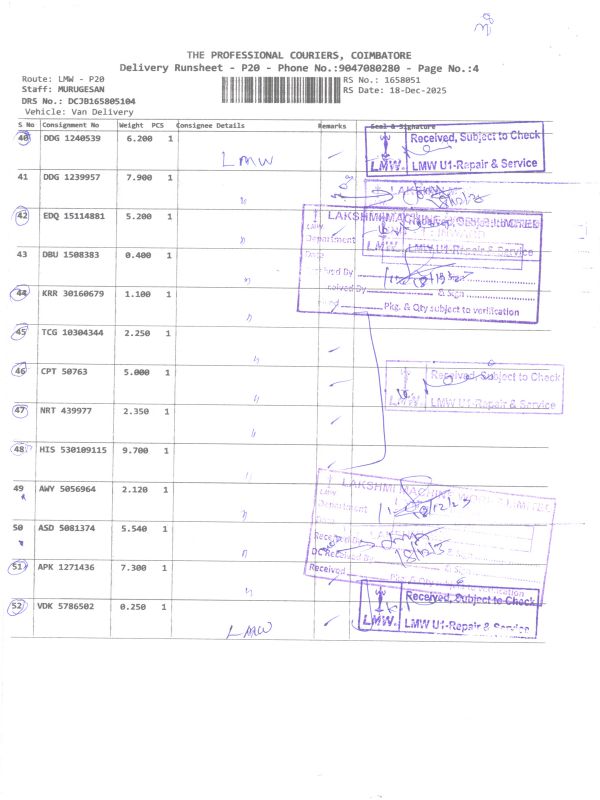 THE PROFESSIONAL COURIERS, COIMBATORE
Delivery Runsheet - P20 - Phone No.:9047080280 - Page No.:4
Route: LMW - P20
Staff: MURUGESAN
DRS No.: DCJB165805104
Vehicle: Van Delivery
RS No.: 1658051
RS Date: 18-Dec-2025
S No Consignment No Weight PCS Consignee Details Remarks Seal & Signature
40 DDG 1240539 6.200 1 LMW
41 DDG 1239957 7.900 1 "
42 EDQ 15114881 5.200 1 "
43 DBU 1508383 0.400 1 "
44 KRR 30160679 1.100 1 "
45 TCG 10304344 2.250 1 "
46 CPT 50763 5.000 1 "
47 NRT 439977 2.350 1 "
48 HIS 530109115 9.700 1 "
49 AWY 5056964 2.120 1 "
50 ASD 5081374 5.540 1 "
51 APK 1271436 7.300 1 "
52 VDK 5786502 0.250 1 LMW
Received, Subject to Check
LMW. LMW U1-Repair & Service
LAKSHMI MACHINE
Department
& Sign
Pkg. & Qty subject to verification
Received, Subject to Check
LMW U1-Repair & Service
LAKSHMI MACHINE WORKS LIMITED
Department
Received By
DC Received By
& Sign
Received
Pkg. & Qty subject to verification
Received, Subject to Check
LMW. LMW U1-Repair & Service